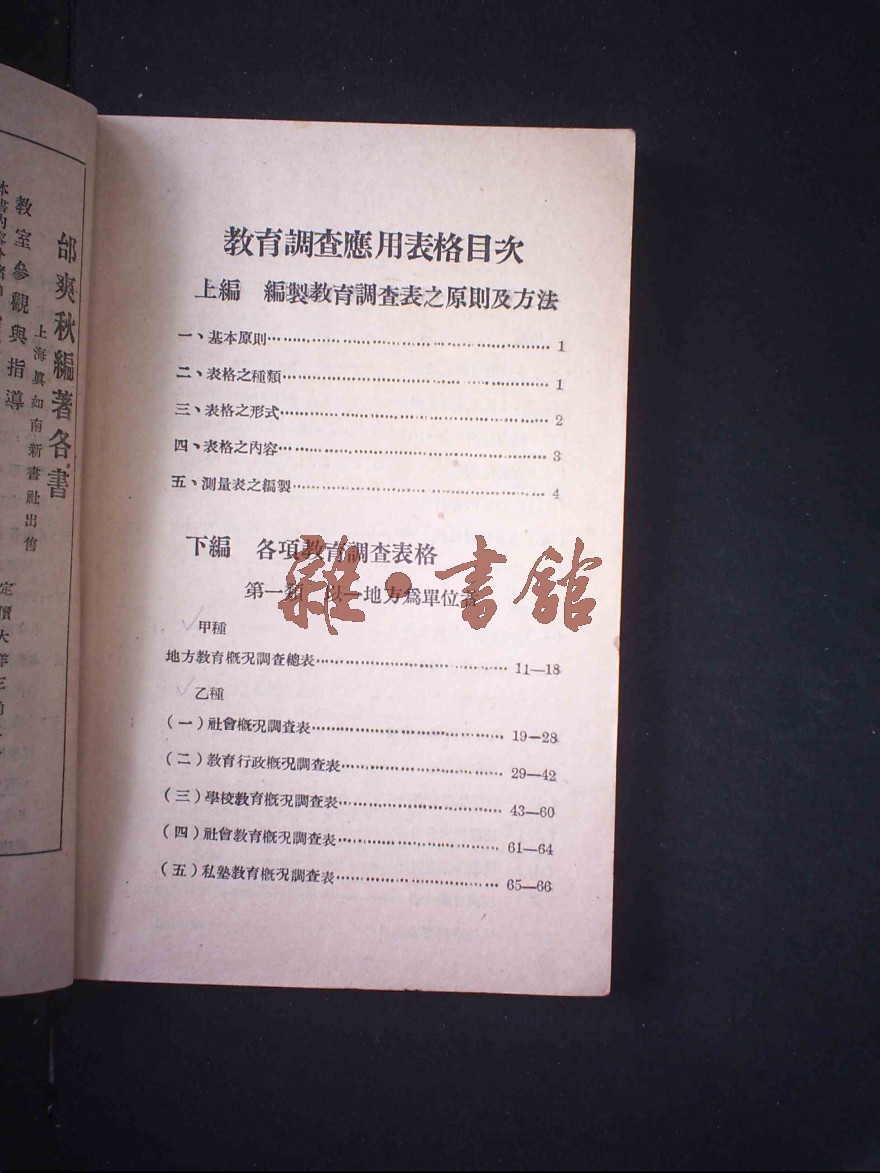 教育調查應用表格目次
上編 編製教育調查表之原則及方法
一、基本原則 1
二、表格之種類 1
三、表格之形式 2
四、表格之內容 3
五、測量表之編製 4
下編 各項教育調查表格
第一類 以一地方爲單位者
甲種
地方教育概況調查總表 11—18
乙種
(一)社會概況調查表 19—28
(二)教育行政概況調查表 29—42
(三)學校教育概況調查表 43—60
(四)社會教育概況調查表 61—64
(五)私塾教育概況調查表 65—66
雜·書館
邰爽秋編著各書
上海真如南新書社出售
教室參觀與指導
定價大洋三角
本書內容